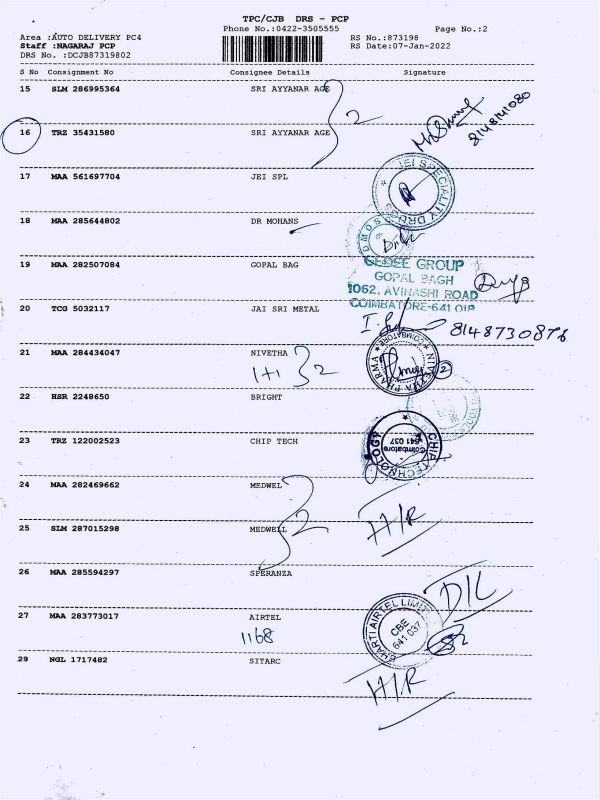 TPC/CJB DRS - PCP
Phone No.:0422-3505555 Page No.:2
Area :AUTO DELIVERY PC4 RS No.:873198
Staff :NAGARAJ PCP RS Date:07-Jan-2022
DRS No. :DCJB87319802
S No Consignment No Consignee Details Signature
15 SLM 286995364 SRI AYYANAR AGE
2
8148141080
16 TRZ 35431580 SRI AYYANAR AGE
17 MAA 561697704 JEI SPL
JEI SPECIALITY
18 MAA 285644802 DR MOHANS
19 MAA 282507084 GOPAL BAG
GEDEE GROUP
GOPAL BAGH
1062, AVINASHI ROAD
COIMBATORE-641 018
20 TCG 5032117 JAI SRI METAL
8148730876
21 MAA 284434047 NIVETHA
1+1 2
NIVETHA PHARMA
COIMBATORE
2
22 HSR 2248650 BRIGHT
23 TRZ 122002523 CHIP TECH
CHIP TECHNOLOGY
Coimbatore
641 037
24 MAA 282469662 MEDWEL
25 SLM 287015298 MEDWELL
2
H/R
26 MAA 285594297 SPERANZA
D/L
27 MAA 283773017 AIRTEL
1168
BHARTI AIRTEL LIMITED
CBE
641 037
28 NGL 1717482 SITARC
H/R